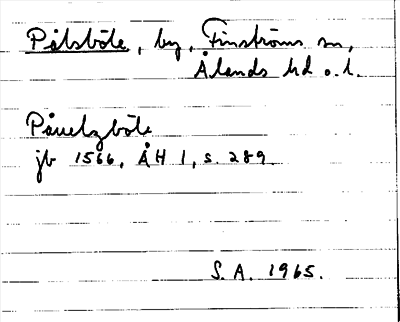 Pålsböle, by, Finströms sn,
Ålands hd o. l.
Påuelzböle
jb 1566, ÅH 1, s. 289
S. A. 1965.